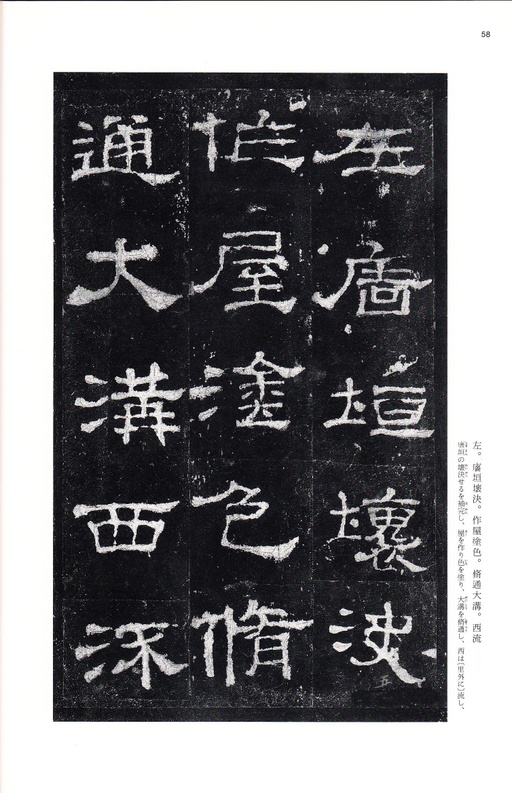 58
左庿垣壞決
作屋塗色脩
通大溝西流
五
左。庿垣壞決。作屋塗色。脩通大溝。西流
庿垣の壊決せるを補完し、屋を作り色を塗り、大溝を脩通し、西は〔里外に〕流し、